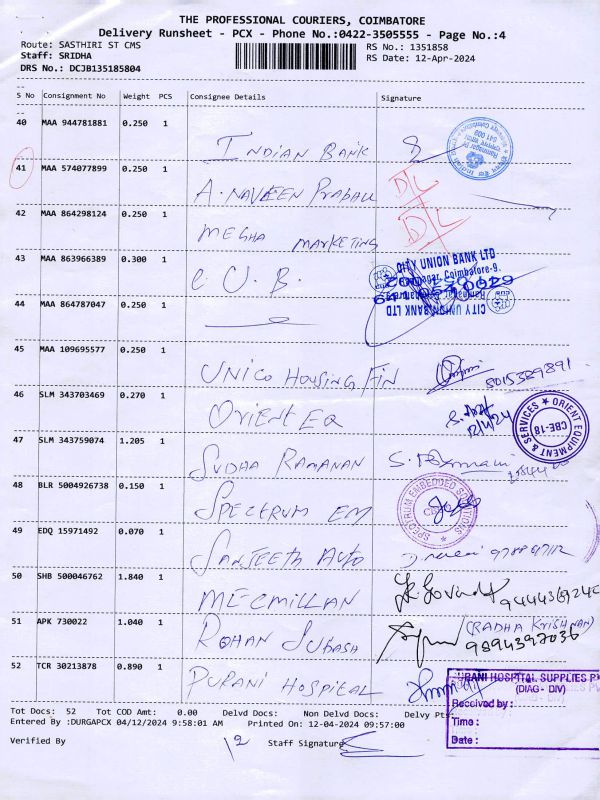 THE PROFESSIONAL COURIERS, COIMBATORE
Delivery Runsheet - PCX - Phone No.:0422-3505555 - Page No.:4
Route: SASTHIRI ST CMS
RS No.: 1351858
Staff: SRIDHA
RS Date: 12-Apr-2024
DRS No.: DCJB135185804
S No Consignment No Weight PCS Consignee Details Signature
40 MAA 944781881 0.250 1
INDIAN BANK
41 MAA 574077899 0.250 1
A. NAVEEN PRABHU D/L
42 MAA 864298124 0.250 1
MEGHA MARKETING D/L
43 MAA 863966389 0.300 1
C. U. B.
CITY UNION BANK LTD
Ramnagar, Coimbatore-9.
CITY UNION BANK LTD
44 MAA 864787047 0.250 1
45 MAA 109695577 0.250 1
UNICO HOUSING FIN
46 SLM 343703469 0.270 1
ORIENT EQ
12/4/24
ORIENT EQUIPMENT & SERVICES
CBE-18
47 SLM 343759074 1.205 1
SUDHA RAMANAN
48 BLR 5004926738 0.150 1
SPECTRUM EM
SPECTRUM EMBEDDED SOLUTIONS
49 EDQ 15971492 0.070 1
SANJEETH AUTO
50 SHB 500046762 1.840 1
MECMILLAN
51 APK 730022 1.040 1
ROHAN SUBASH
(RADHA KRISHNAN)
9894397036
52 TCR 30213878 0.890 1
DURANI HOSPITAL
URANI HOSPITAL SUPPLIES
(DIAG - DIV)
Received by :
Time :
Date :
Tot Docs: 52 Tot COD Amt: 0.00 Delvd Docs: Non Delvd Docs: Delvy Pts:
Entered By :DURGAPCX 04/12/2024 9:58:01 AM Printed On: 12-04-2024 09:57:00
Verified By
12
Staff Signature